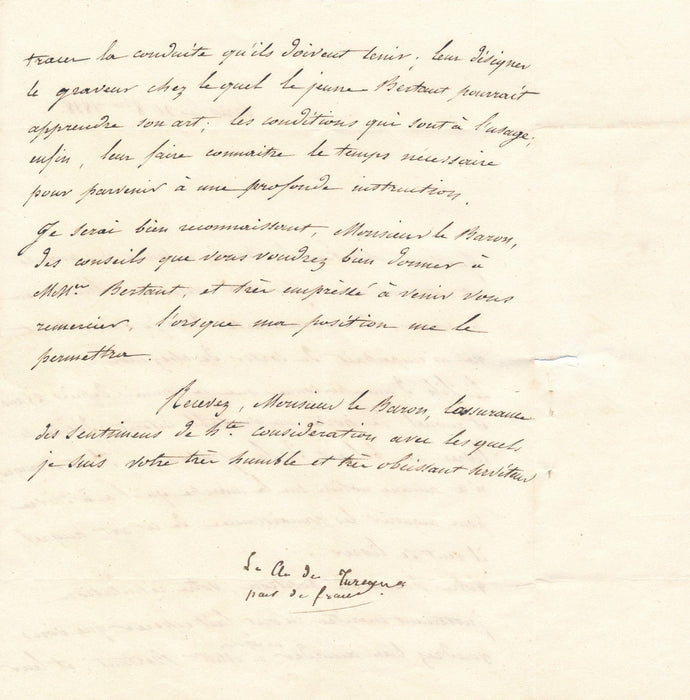 tracer la conduite qu'ils doivent tenir; leur désigner
le graveur chez lequel le jeune Bertaut pourrait
apprendre son art; les conditions qui sont à l'usage;
enfin, leur faire connaitre le temps nécessaire
pour parvenir à une profonde instruction.
Je serai bien reconnaissant, Monsieur le Baron,
des conseils que vous voudrez bien donner à
MMrs Bertaut, et très empressé à venir vous
remercier, l'orsque ma position me le
permettra.
Recevez, Monsieur le Baron, l'assurance
des sentimens de hte considération avec lesquels
je suis votre très humble et très obeissant serviteur
Le Cte de Turenne
pair de france